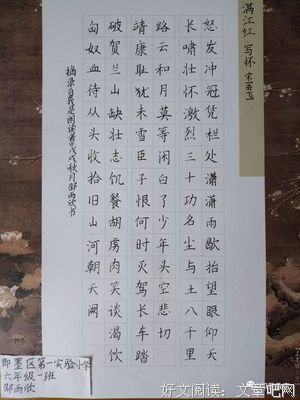 满江红 写怀 宋 岳飞
怒发冲冠凭栏处潇潇雨歇抬望眼仰天
长啸壮怀激烈三十功名尘与土八千里
路云和月莫等闲白了少年头空悲切
靖康耻犹未雪臣子恨何时灭驾长车踏
破贺兰山缺壮志饥餐胡虏肉笑谈渴饮
匈奴血待从头收拾旧山河朝天阙
摘录自我是阅读者戊戌秋月邵雨欣书
即墨区第一实验小学
六年级一班
邵雨欣
好文阅读：文章吧网